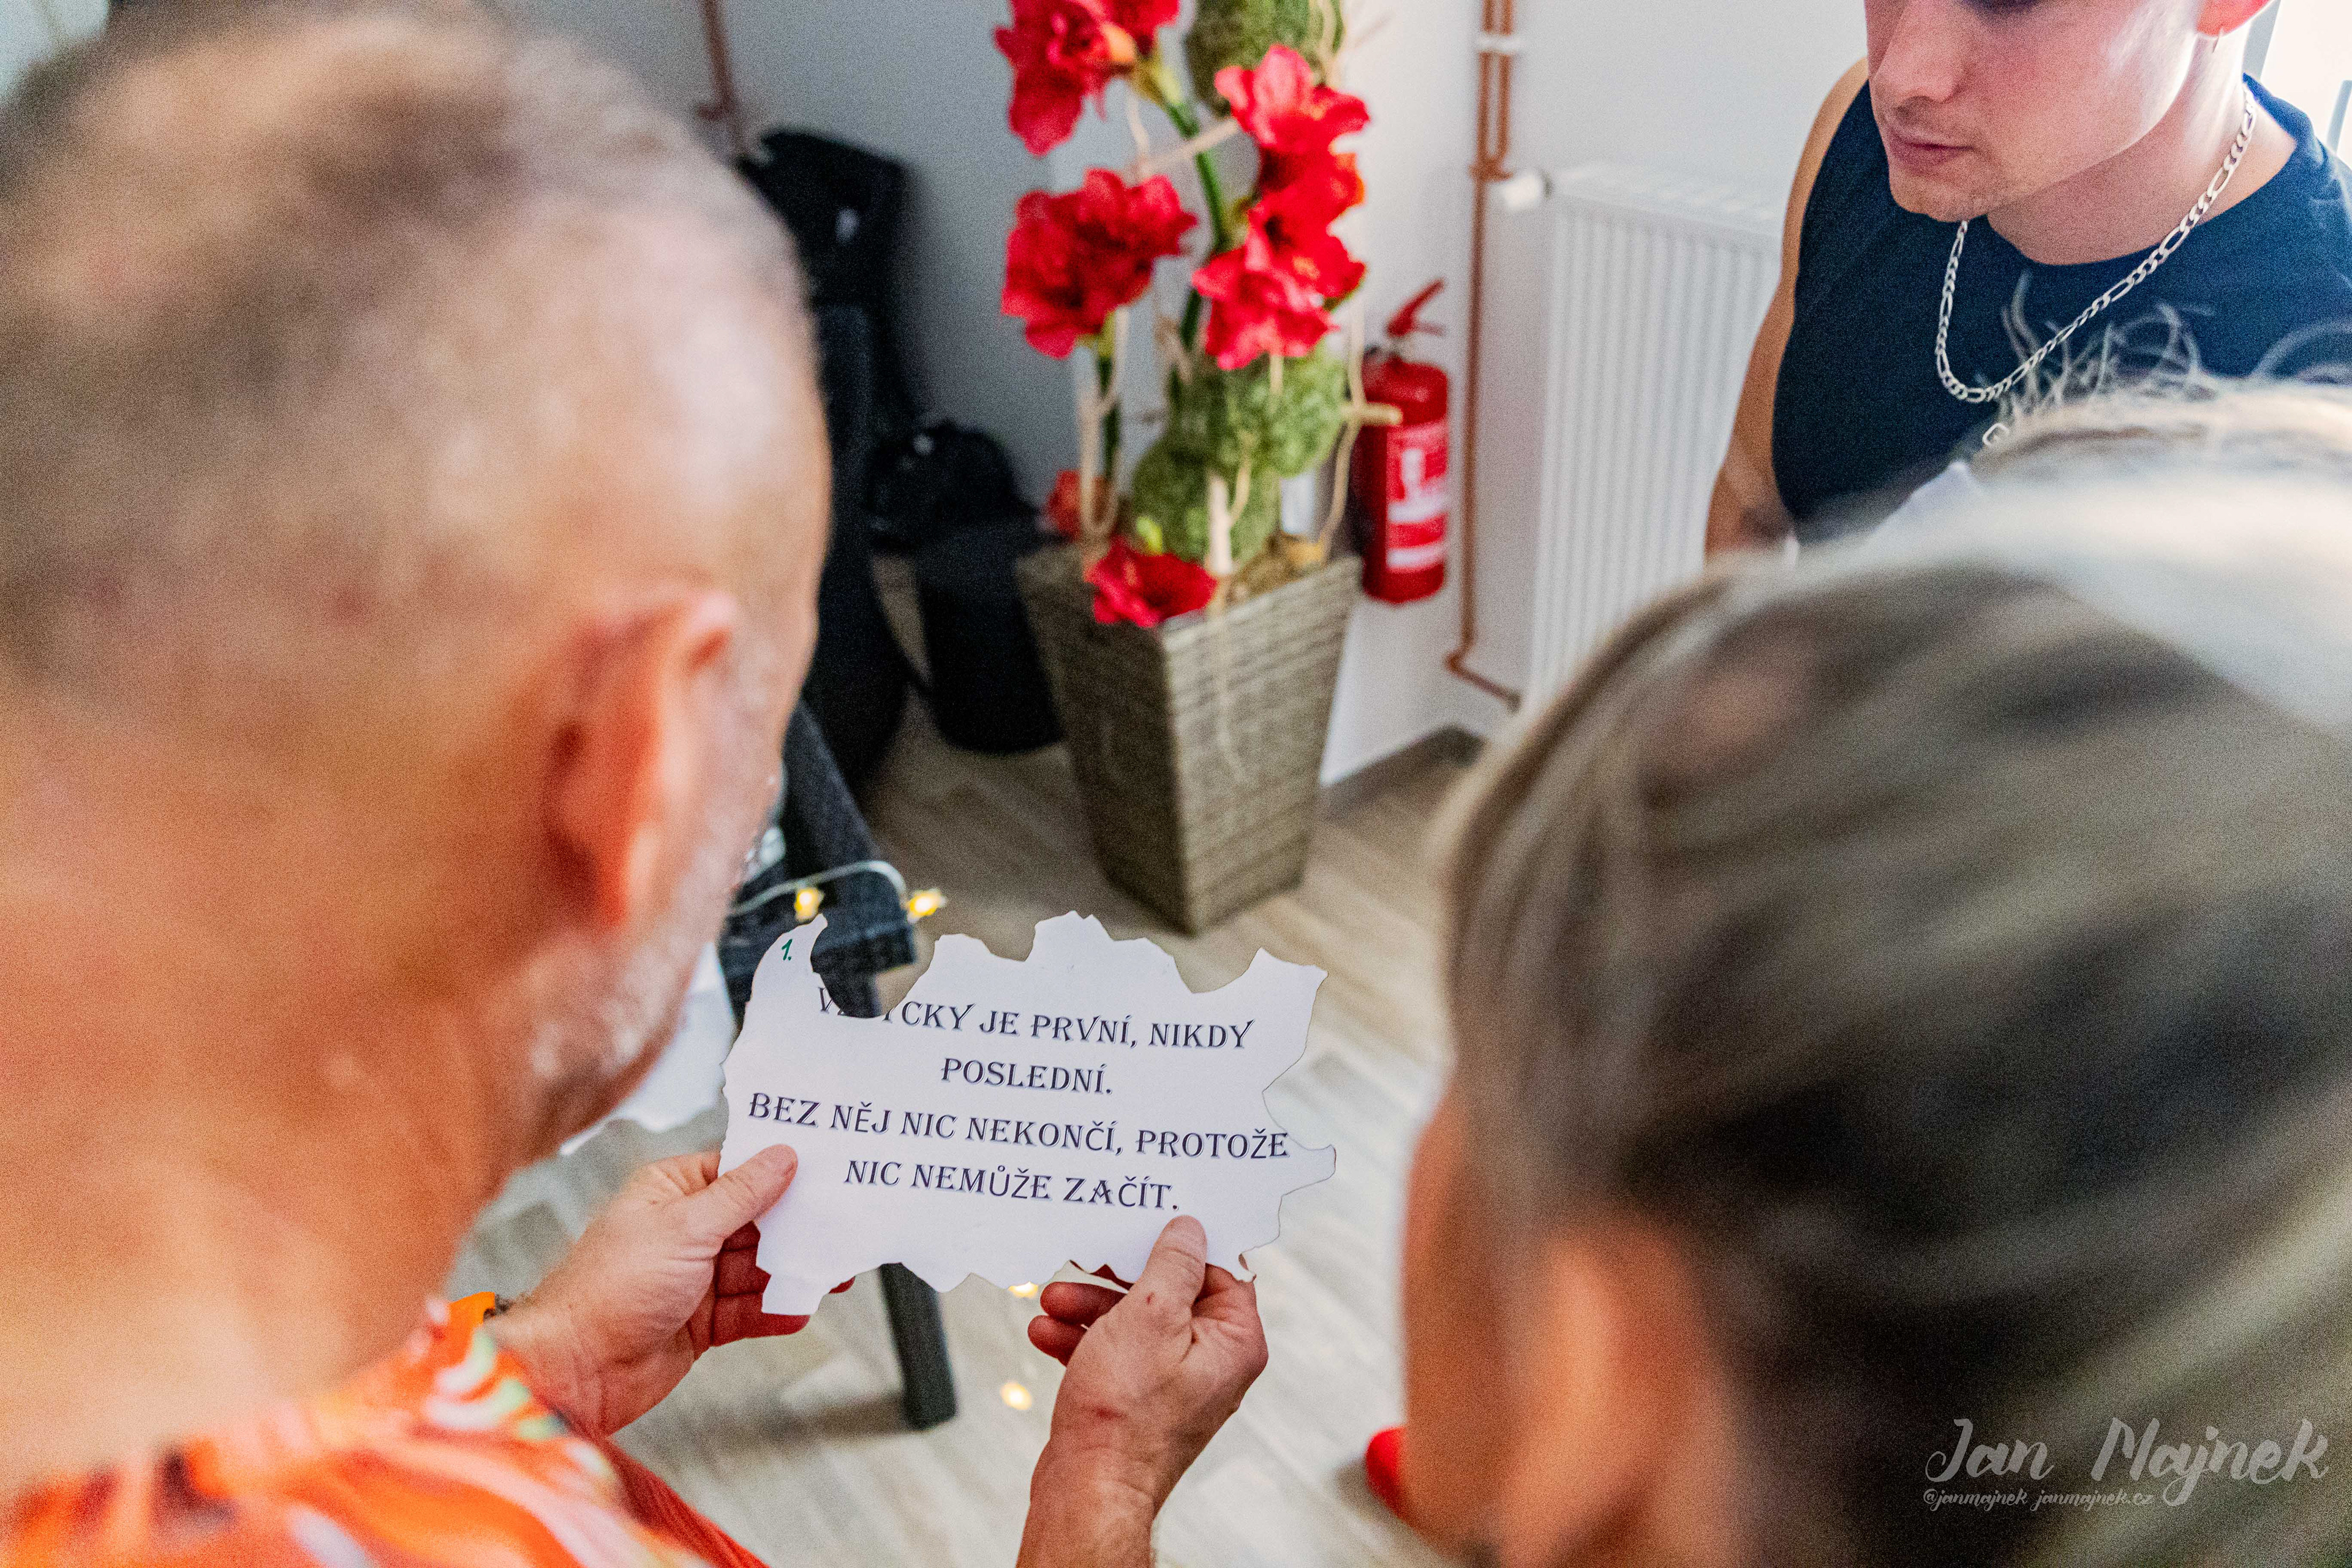 1.
CKY JE PRVNÍ, NIKDY
POSLEDNÍ.
BEZ NĚJ NIC NEKONČÍ, PROTOŽE
NIC NEMŮŽE ZAČÍT.
Jan Majnek
@janmajnek janmajnek.cz